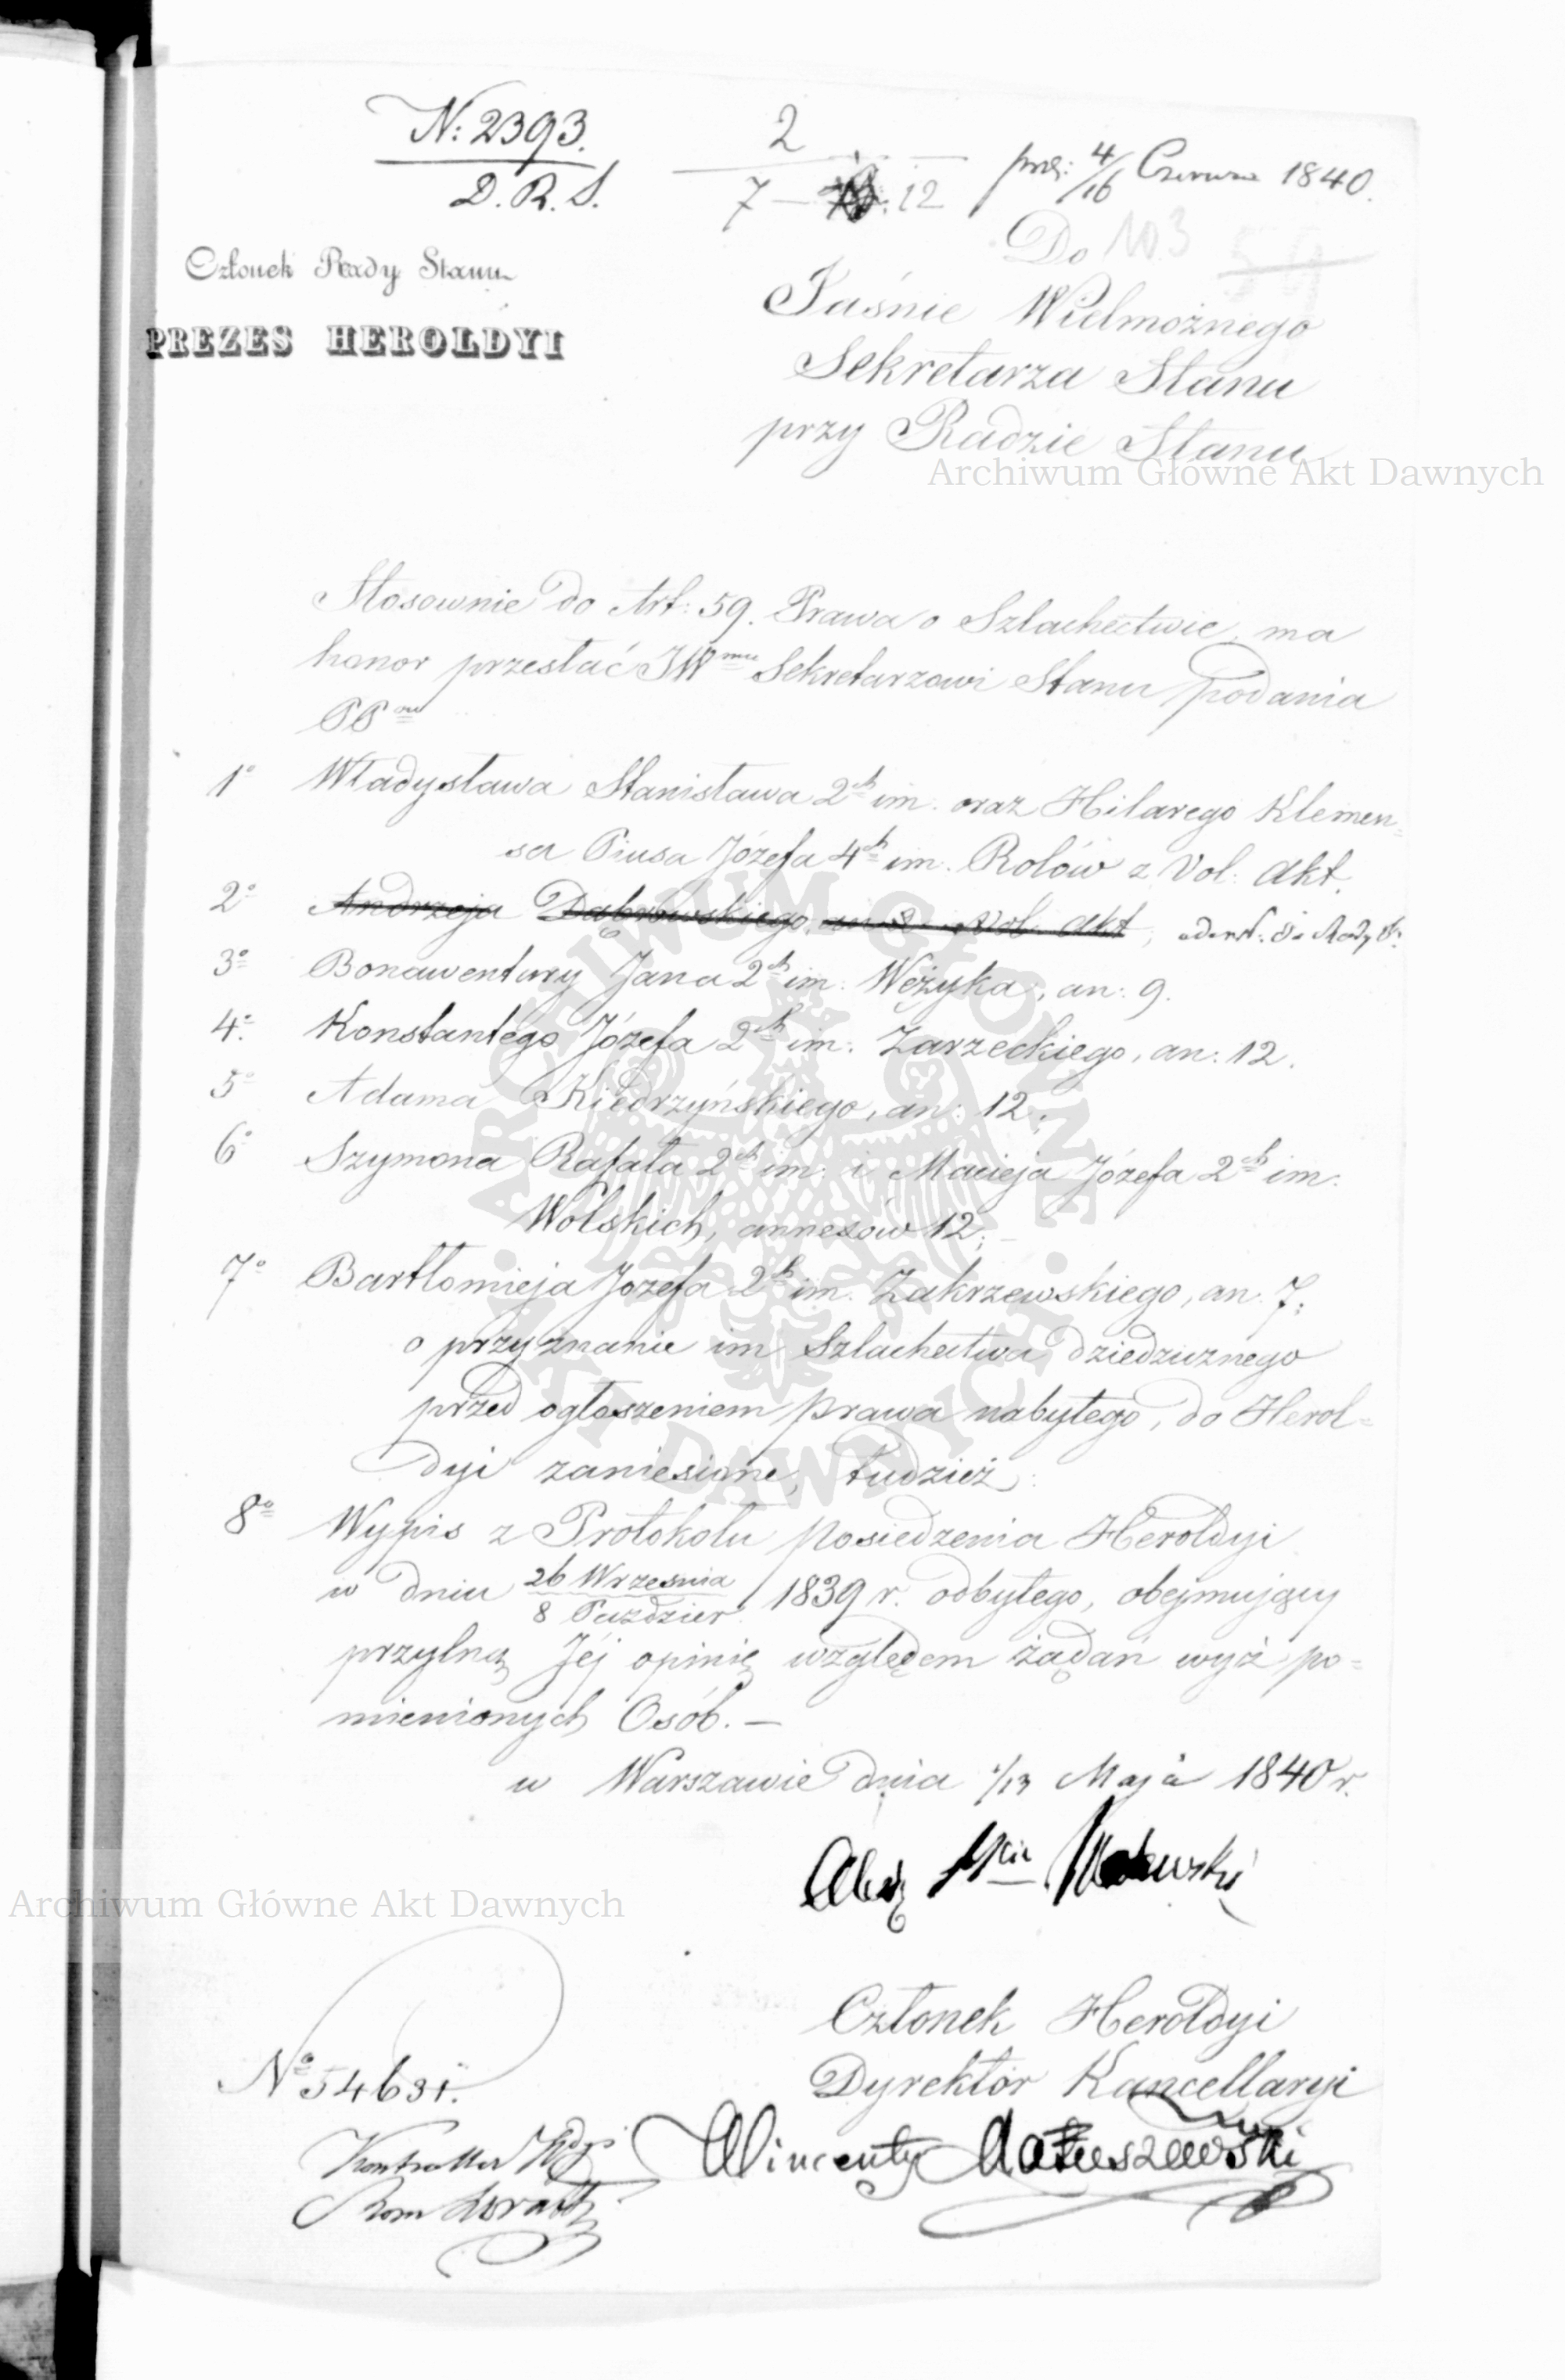 N: 2393.
D. R. S.
2
7 — 12
prez: 4/16 Czerwca 1840.
Do 103
Członek Rady Stanu
PREZES HEROLDYI
Jaśnie Wielmożnego
Sekretarza Stanu
przy Radzie Stanu
Archiwum Główne Akt Dawnych
Stosownie do Art: 59. Prawa o Szlachectwie, ma
honor przesłać JWmu Sekretarzowi Stanu podania
PPnów
1o Władysława Stanisława 2ch im. oraz Hilarego Klemen=
sa Piusa Józefa 4ch im. Rolów z Vol: Akt.
2o Andrzeja Dąbrowskiego, an 2 Vol. Akt,
3o Bonawentury Jana 2ch im: Wężyka, an: 9.
4o Konstantego Józefa 2ch im: Zarzeckiego, an: 12.
5o Adama Kiedrzyńskiego, an: 12;
6o Szymona Rafała 2ch im: i Macieja Józefa 2ch im.
Wolskich, annexów 12;
7o Bartłomieja Józefa 2ch im. Zakrzewskiego, an. 7;
o przyznanie im Szlachectwa dziedzicznego
przed ogłoszeniem prawa nabytego, do Herol=
dyi zaniesione, tudzież:
8o Wypis z Protokołu posiedzenia Heroldyi
w dniu 26 Września / 8 Paździer. 1839 r. odbytego, obejmujący
przylną Jéj opinię względem żądań wyż po=
mienionych Osób. —
w Warszawie dnia 1/13 Maja 1840 r.
Archiwum Główne Akt Dawnych
Członek Heroldyi
Dyrektor Kancellaryi
No 54631.
Wincenty Matuszewski
Kontroller
ARCHIWUM GŁÓWNE · AKT DAWNYCH ·